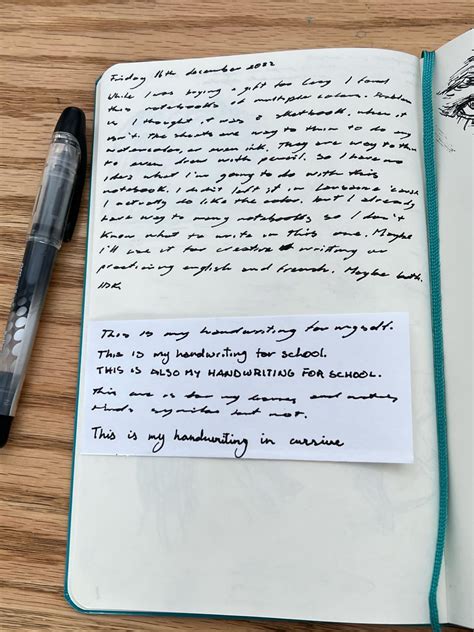 Friday 16th december 2022
While I was buying a gift for Lucy I found
this notebooks of multiple colors. Problem
is I thought it was a sketchbook, when it
isn't. The sheets are way to thin to do my
watercolor, or even ink. They are way to thin
to even draw with pencil. So I have no
idea what I'm going to do with this
notebook. I didn't left it in 'cause
I actually do like the color. But I already
have way to many notebooks, so I don't
know what to write in this one. Maybe
I'll use it for creative writing or
practicing english and French. Maybe both.
IDK.
This is my handwriting for myself.
This is my handwriting for school.
THIS IS ALSO MY HANDWRITING FOR SCHOOL.
This one is for my and
but not.
This is my handwriting in cursive